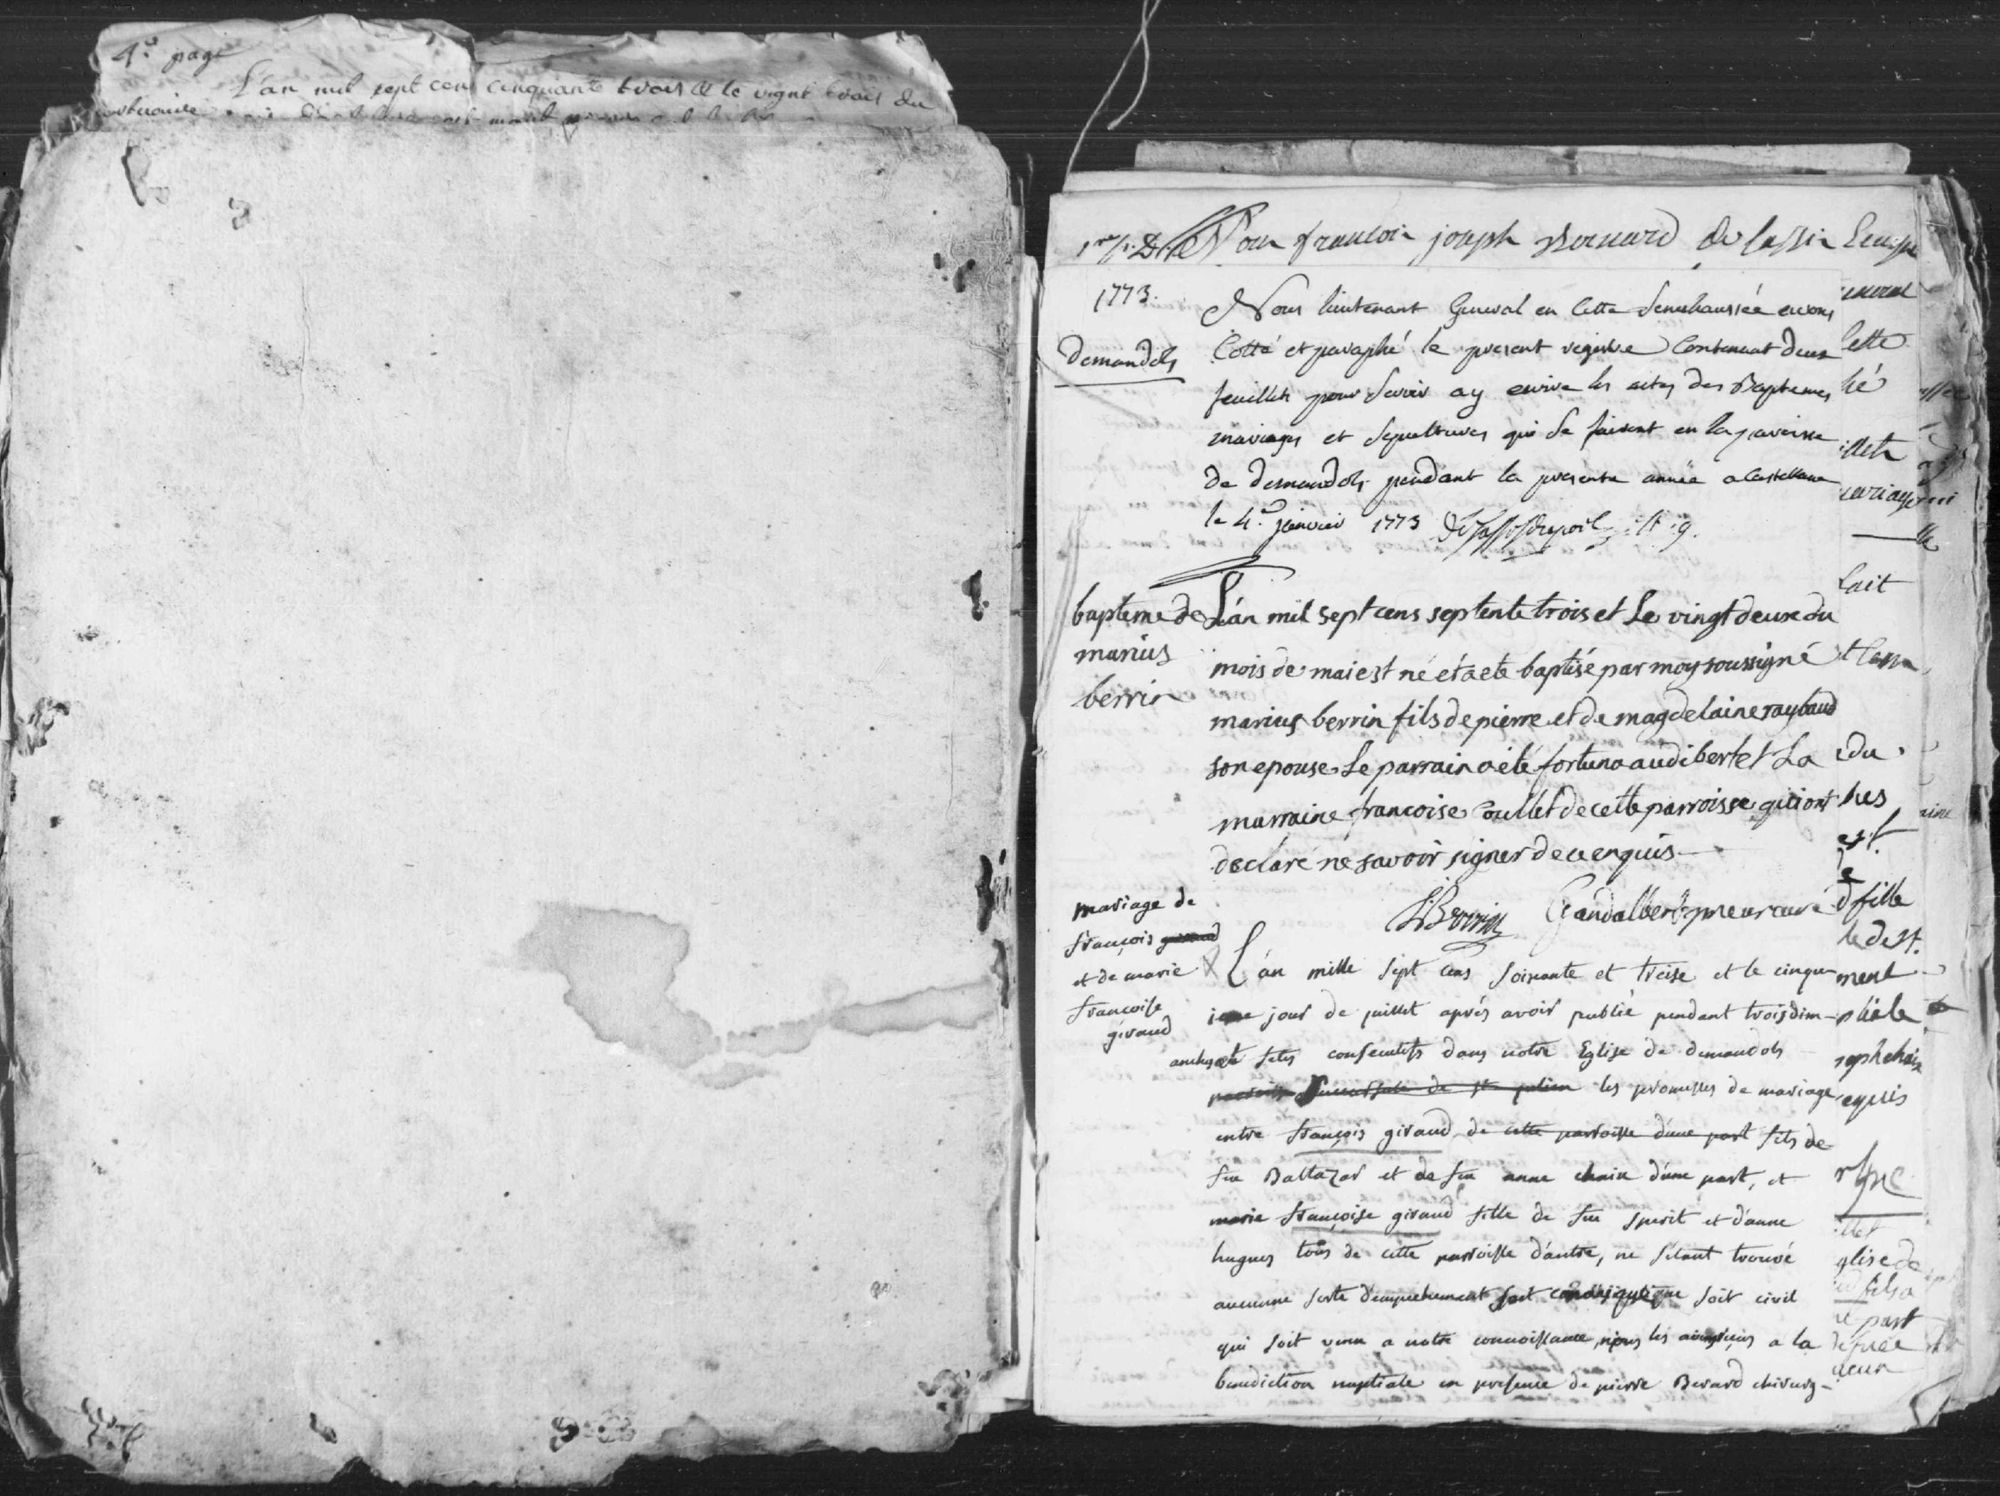 4e page
L'an mil sept cens cinquante trois & le vignt trois du
Nous françois joseph Bernard de lassin
1773.
demandols
Nous lieutenant General en Cette Senechaussée avons
Cotté et paraphé le present registre Contenant deux
feuillets pour servir ay ecrire les actes des Baptemes
mariages et sepultures qui se fairont en la paroisse
de demandols pendant la presente année a Castellane
le 4e janvier 1773
bapteme de
marius
berrin
L'an mil sept cens septente trois et Le vingt deux du
mois de mai est né et a ete baptisé par moy soussigné
marius berrin fils de pierre et de magdelaine raybaud
son epouse Le parrain a été fortuna audibert et La
marraine francoise Coullet de cette parroisse qui ont
declaré ne savoir signer de ce enquis
Berrin Gandalbert prieur curé
mariage de
françois giraud
et de marie
françoise
giraud
L'an mille sept cens soixante et treise et le cinqu-
ieme jour de juillet aprés avoir publié pendant trois dim-
anches et fetes consecutifs dans notre Eglise de demandols
paroisse succursale de st julien les promesses de mariage
entre françois giraud de cette parroisse d'une part fils de
feu Baltazar et de feu anne chaix d'une part, et
marie françoise giraud fille de feu sperit et d'anne
hugues tous de cette parroisse d'autre, ne s'étant trouvé
aucune sorte d'empechement soit canonique soit civil
qui soit venu a notre connoissance, nous les avons reçus a la
benediction nuptiale en presence de pierre Berard chirurg-
cette
hé
illets
mariages
fait
du
hes
est
le
fille
le dest
ment
glise de
fils a
ne part
de feue